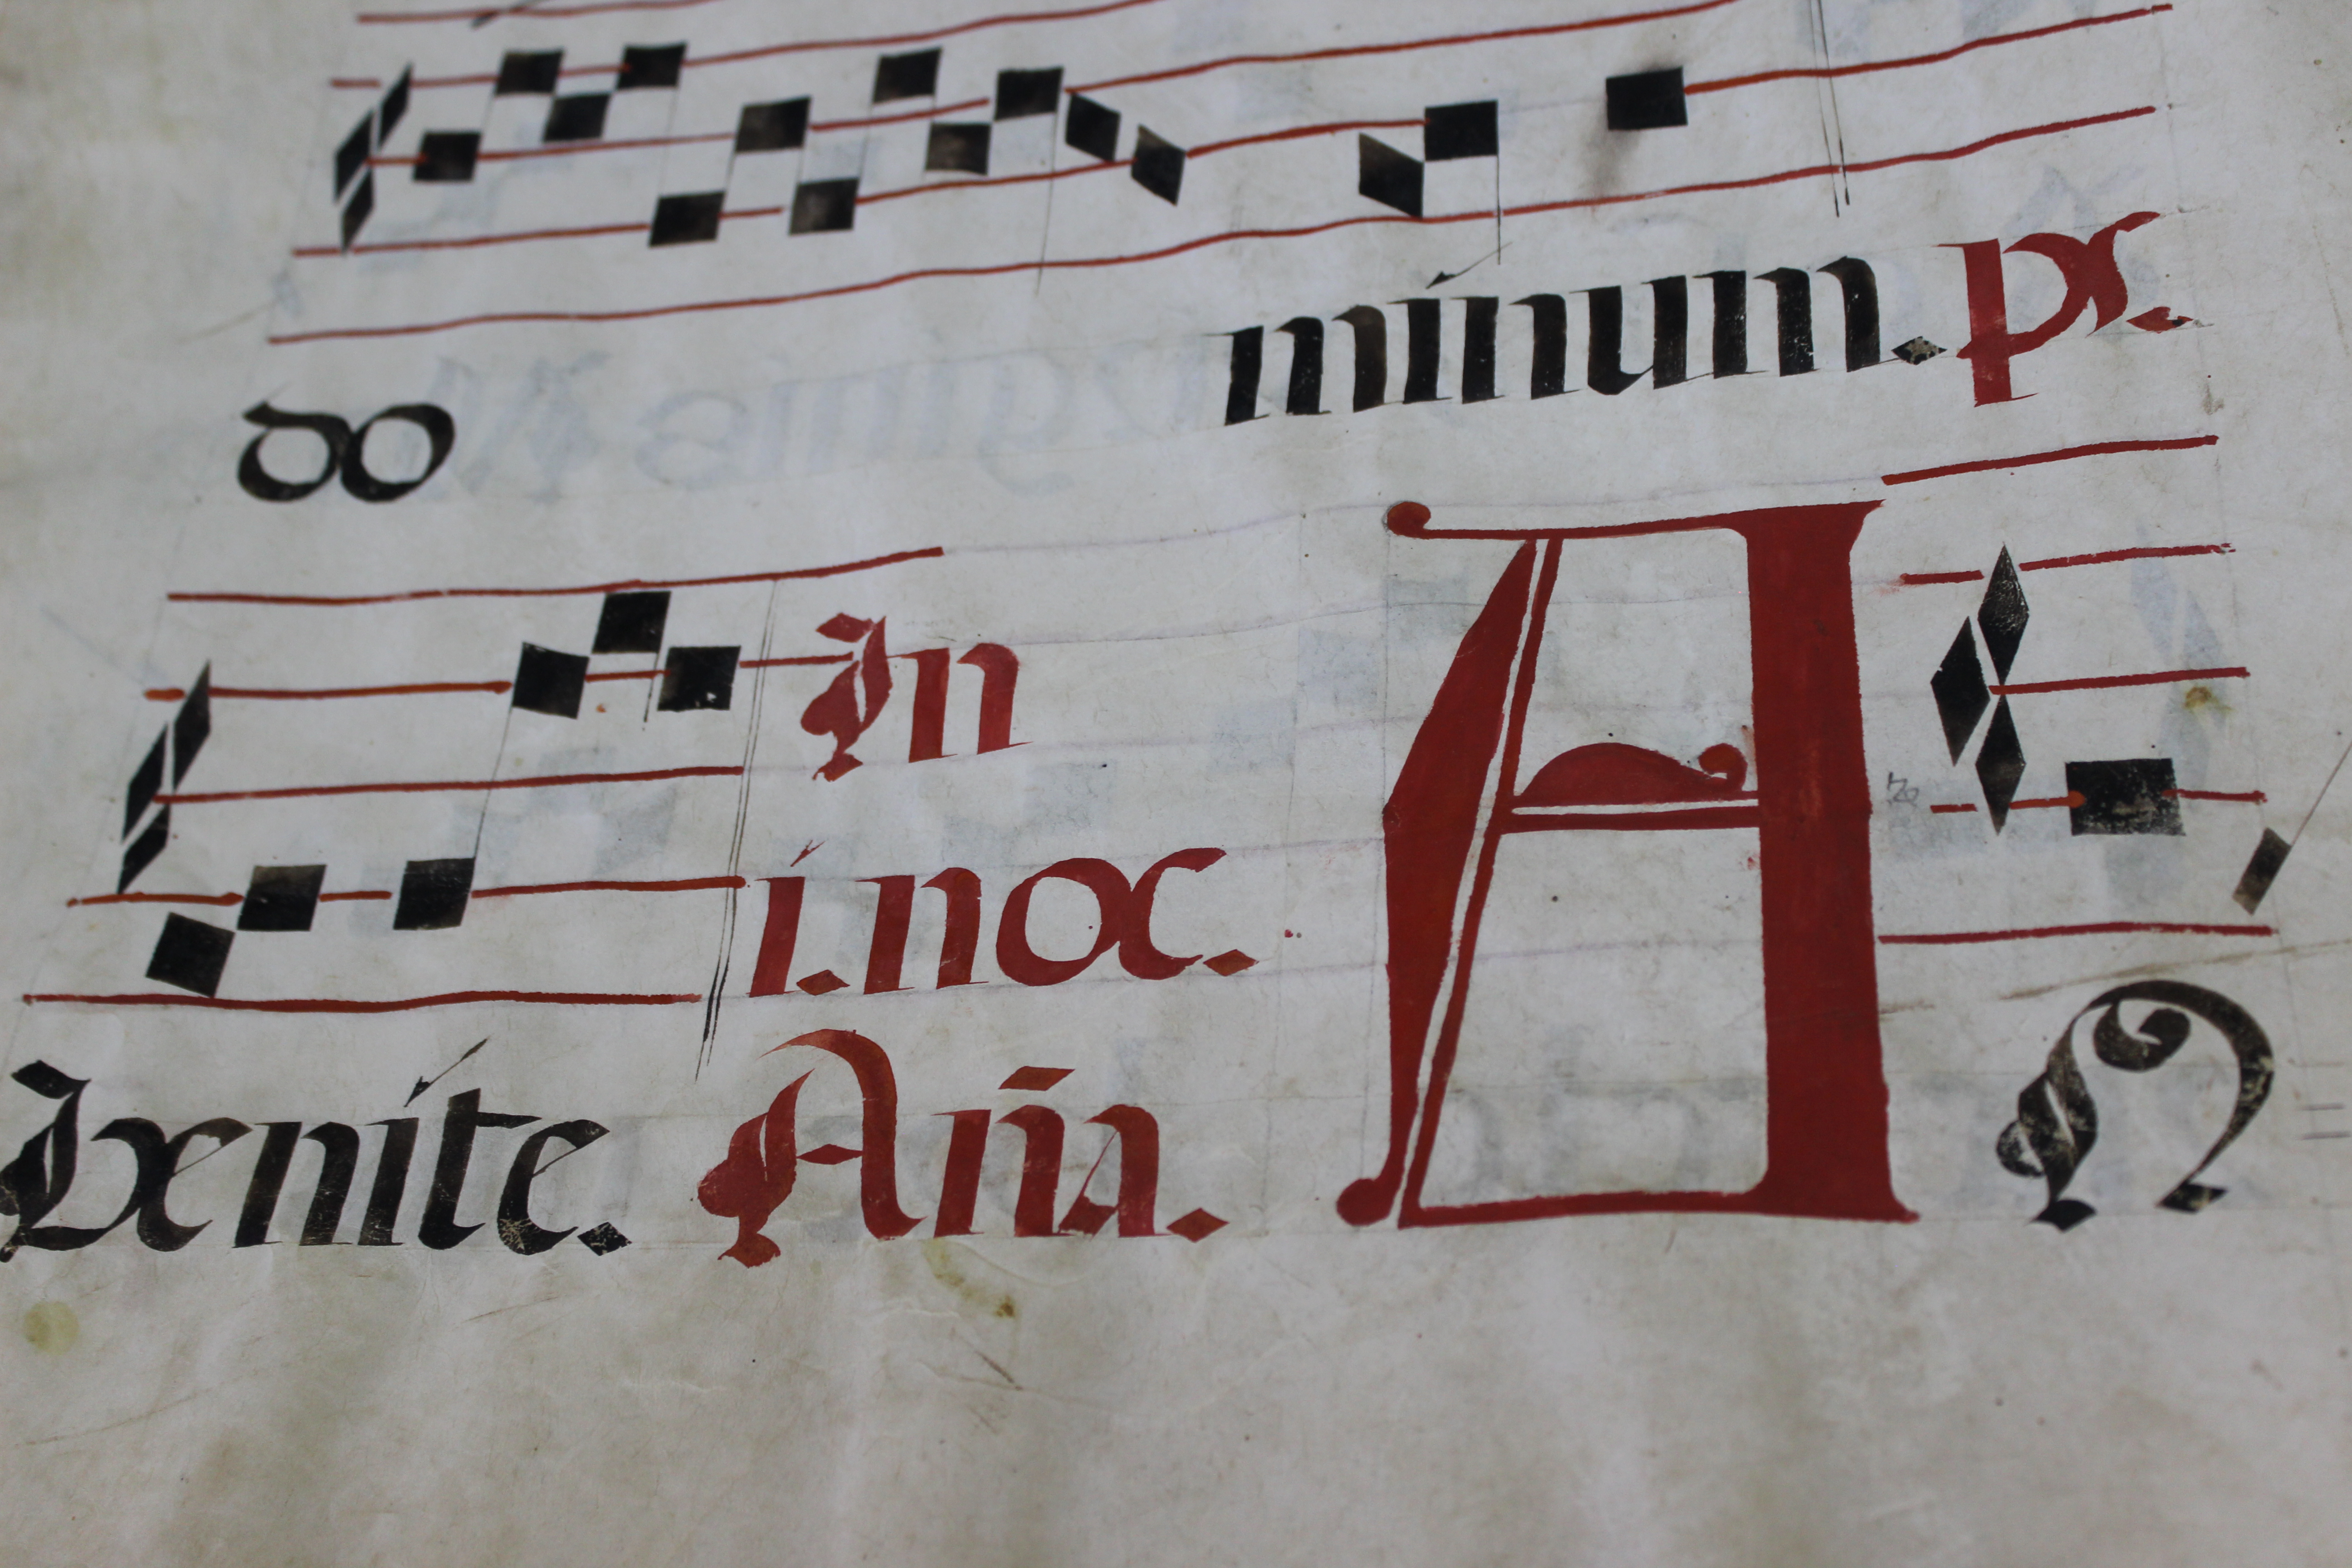 do minum. ps.
In
i. noc.
Venite. Aña. A N